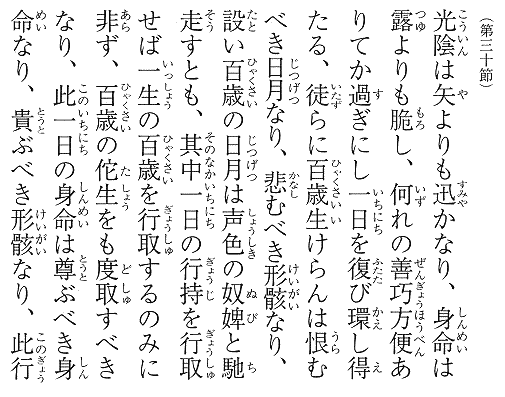 （第三十節）
光陰は矢よりも迅かなり、身命は
露よりも脆し、何れの善巧方便あ
りてか過ぎにし一日を復び環し得
たる、徒らに百歳生けらんは恨む
べき日月なり、悲むべき形骸なり、
設い百歳の日月は声色の奴婢と馳
走すとも、其中一日の行持を行取
せば一生の百歳を行取するのみに
非ず、百歳の佗生をも度取すべき
なり、此一日の身命は尊ぶべき身
命なり、貴ぶべき形骸なり、此行